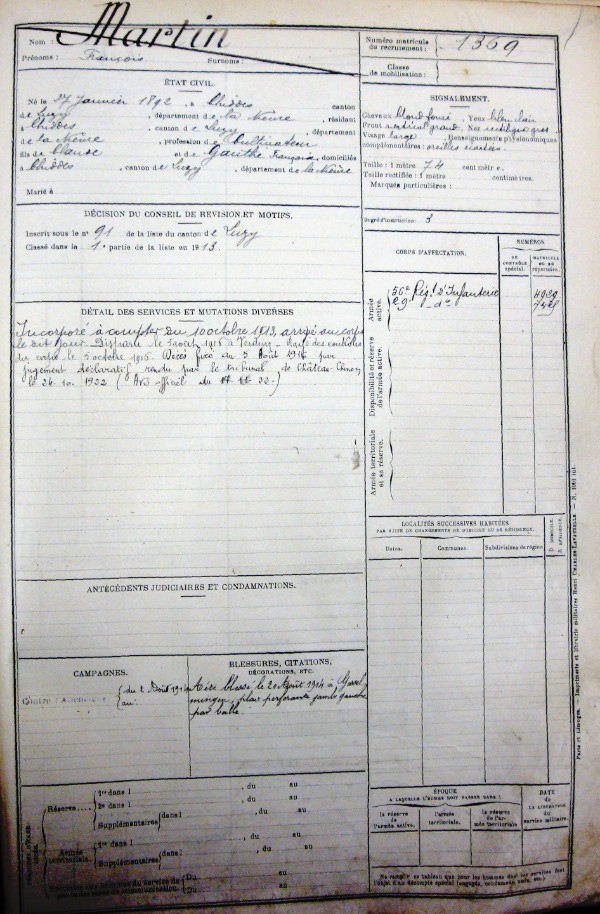 Nom : Martin
Prénoms : François Surnoms :
Numéro matricule du recrutement : 1369
Classe de mobilisation :
ÉTAT CIVIL.
Né le 27 Janvier 1892, à Chiddes canton
de Luzy, département de la Nièvre, résidant
à Chiddes, canton de Luzy, département
de la Nièvre, profession de Cultivateur
fils de Claude et de Gauthé Françoise, domiciliés
à Chiddes, canton de Luzy, département de la Nièvre
Marié à
SIGNALEMENT.
Cheveux blond foncé, Yeux bleu clair
Front grand, Nez rectiligne gros
Visage large, Renseignements physionomiques
complémentaires : oreilles écartées.
Taille : 1 mètre 74 centimètres.
Taille rectifiée : 1 mètre centimètres.
Marques particulières :
Degré d'instruction : 3
DÉCISION DU CONSEIL DE REVISION ET MOTIFS.
Inscrit sous le n° 91 de la liste du canton de Luzy
Classé dans la 1e partie de la liste en 1913.
CORPS D'AFFECTATION.
NUMÉROS
AU contrôle spécial.
MATRICULE ou au répertoire.
Armée active.
56e Régt d'Infanterie 4929
29e do
Disponibilité et réserve de l'armée active.
Armée territoriale et sa réserve.
DÉTAIL DES SERVICES ET MUTATIONS DIVERSES
Incorporé à compter du 10 octobre 1913, arrivé au corps
le dit jour. Disparu le 5 août 1916 à Verdun. Rayé des contrôles
du corps le 5 octobre 1916. Décès fixé au 5 Août 1916 par
jugement déclaratif rendu par le tribunal de Château-Chinon
le 26.10.1922 (Avis officiel du 22.-
LOCALITÉS SUCCESSIVES HABITÉES
PAR SUITE DE CHANGEMENTS DE DOMICILE OU DE RÉSIDENCE.
Dates. Communes. Subdivisions de région D. DOMICILE. R. RÉSIDENCE.
ANTÉCÉDENTS JUDICIAIRES ET CONDAMNATIONS.
CAMPAGNES.
Contre : Allemagne
du 2 Août 1914
au
BLESSURES, CITATIONS,
DÉCORATIONS, ETC.
A été blessé le 20 Août 1914 à Gosselmingen, plaie perforante jambe gauche
par balle
Réserve
1re dans l , du au
2e dans l , du au
Supplémentaires dans l , du au
Armée territoriale.
1re dans l , du au
Supplémentaires dans l , du au
Du au
Du au
ÉPOQUE
A LAQUELLE L'HOMME DOIT PASSER DANS :
la réserve de l'armée active.
l'armée territoriale.
la réserve de l'armée territoriale
DATE
DE LA LIBÉRATION DU service militaire.
Ne remplir ce tableau que pour les hommes dont les services font
l'objet d'un décompte spécial (engagés, condamnés, omis, etc.)
Paris et Limoges. — Imprimerie et librairie militaires Henri CHARLES-LAVAUZELLE